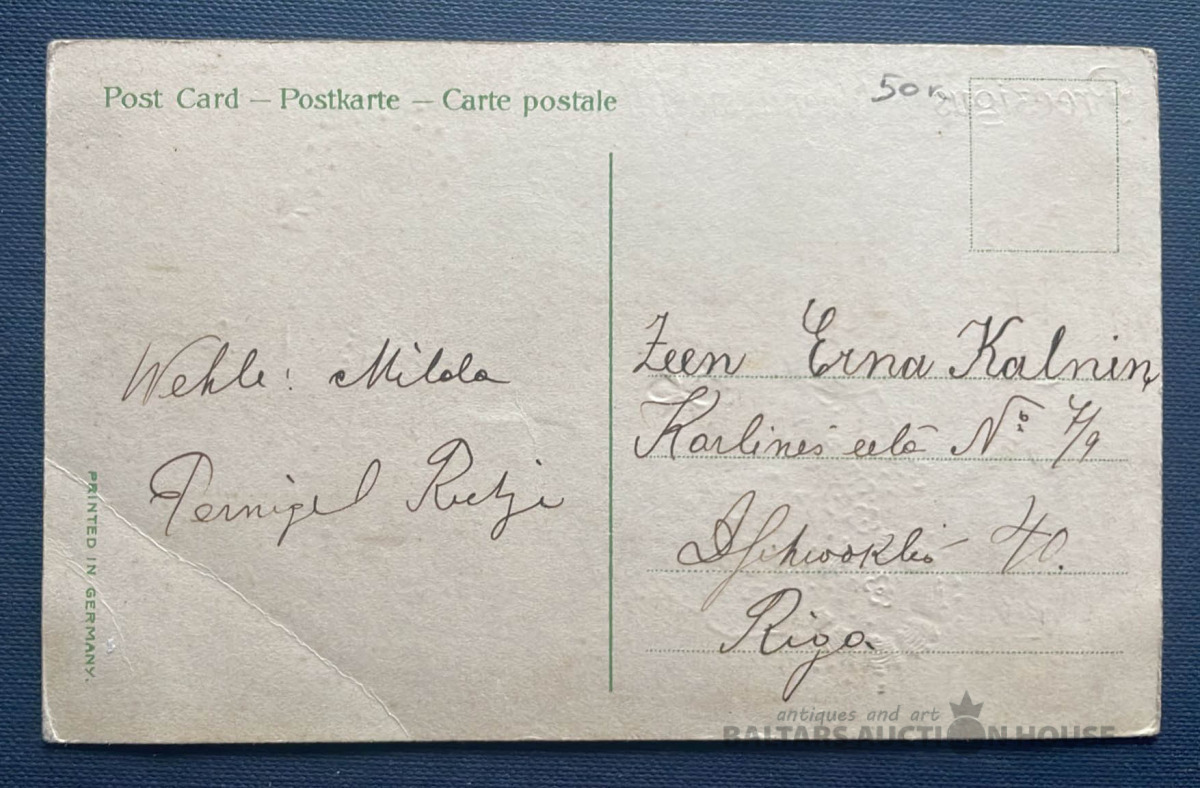 Post Card — Postkarte — Carte postale
50
Wehle: Milda
Pernigel
PRINTED IN GERMANY.
Zeen Erna Kalnin
Karlines eelâ No 7/9
40.
Riga
antiques and art
BALTARS AUCTION HOUSE